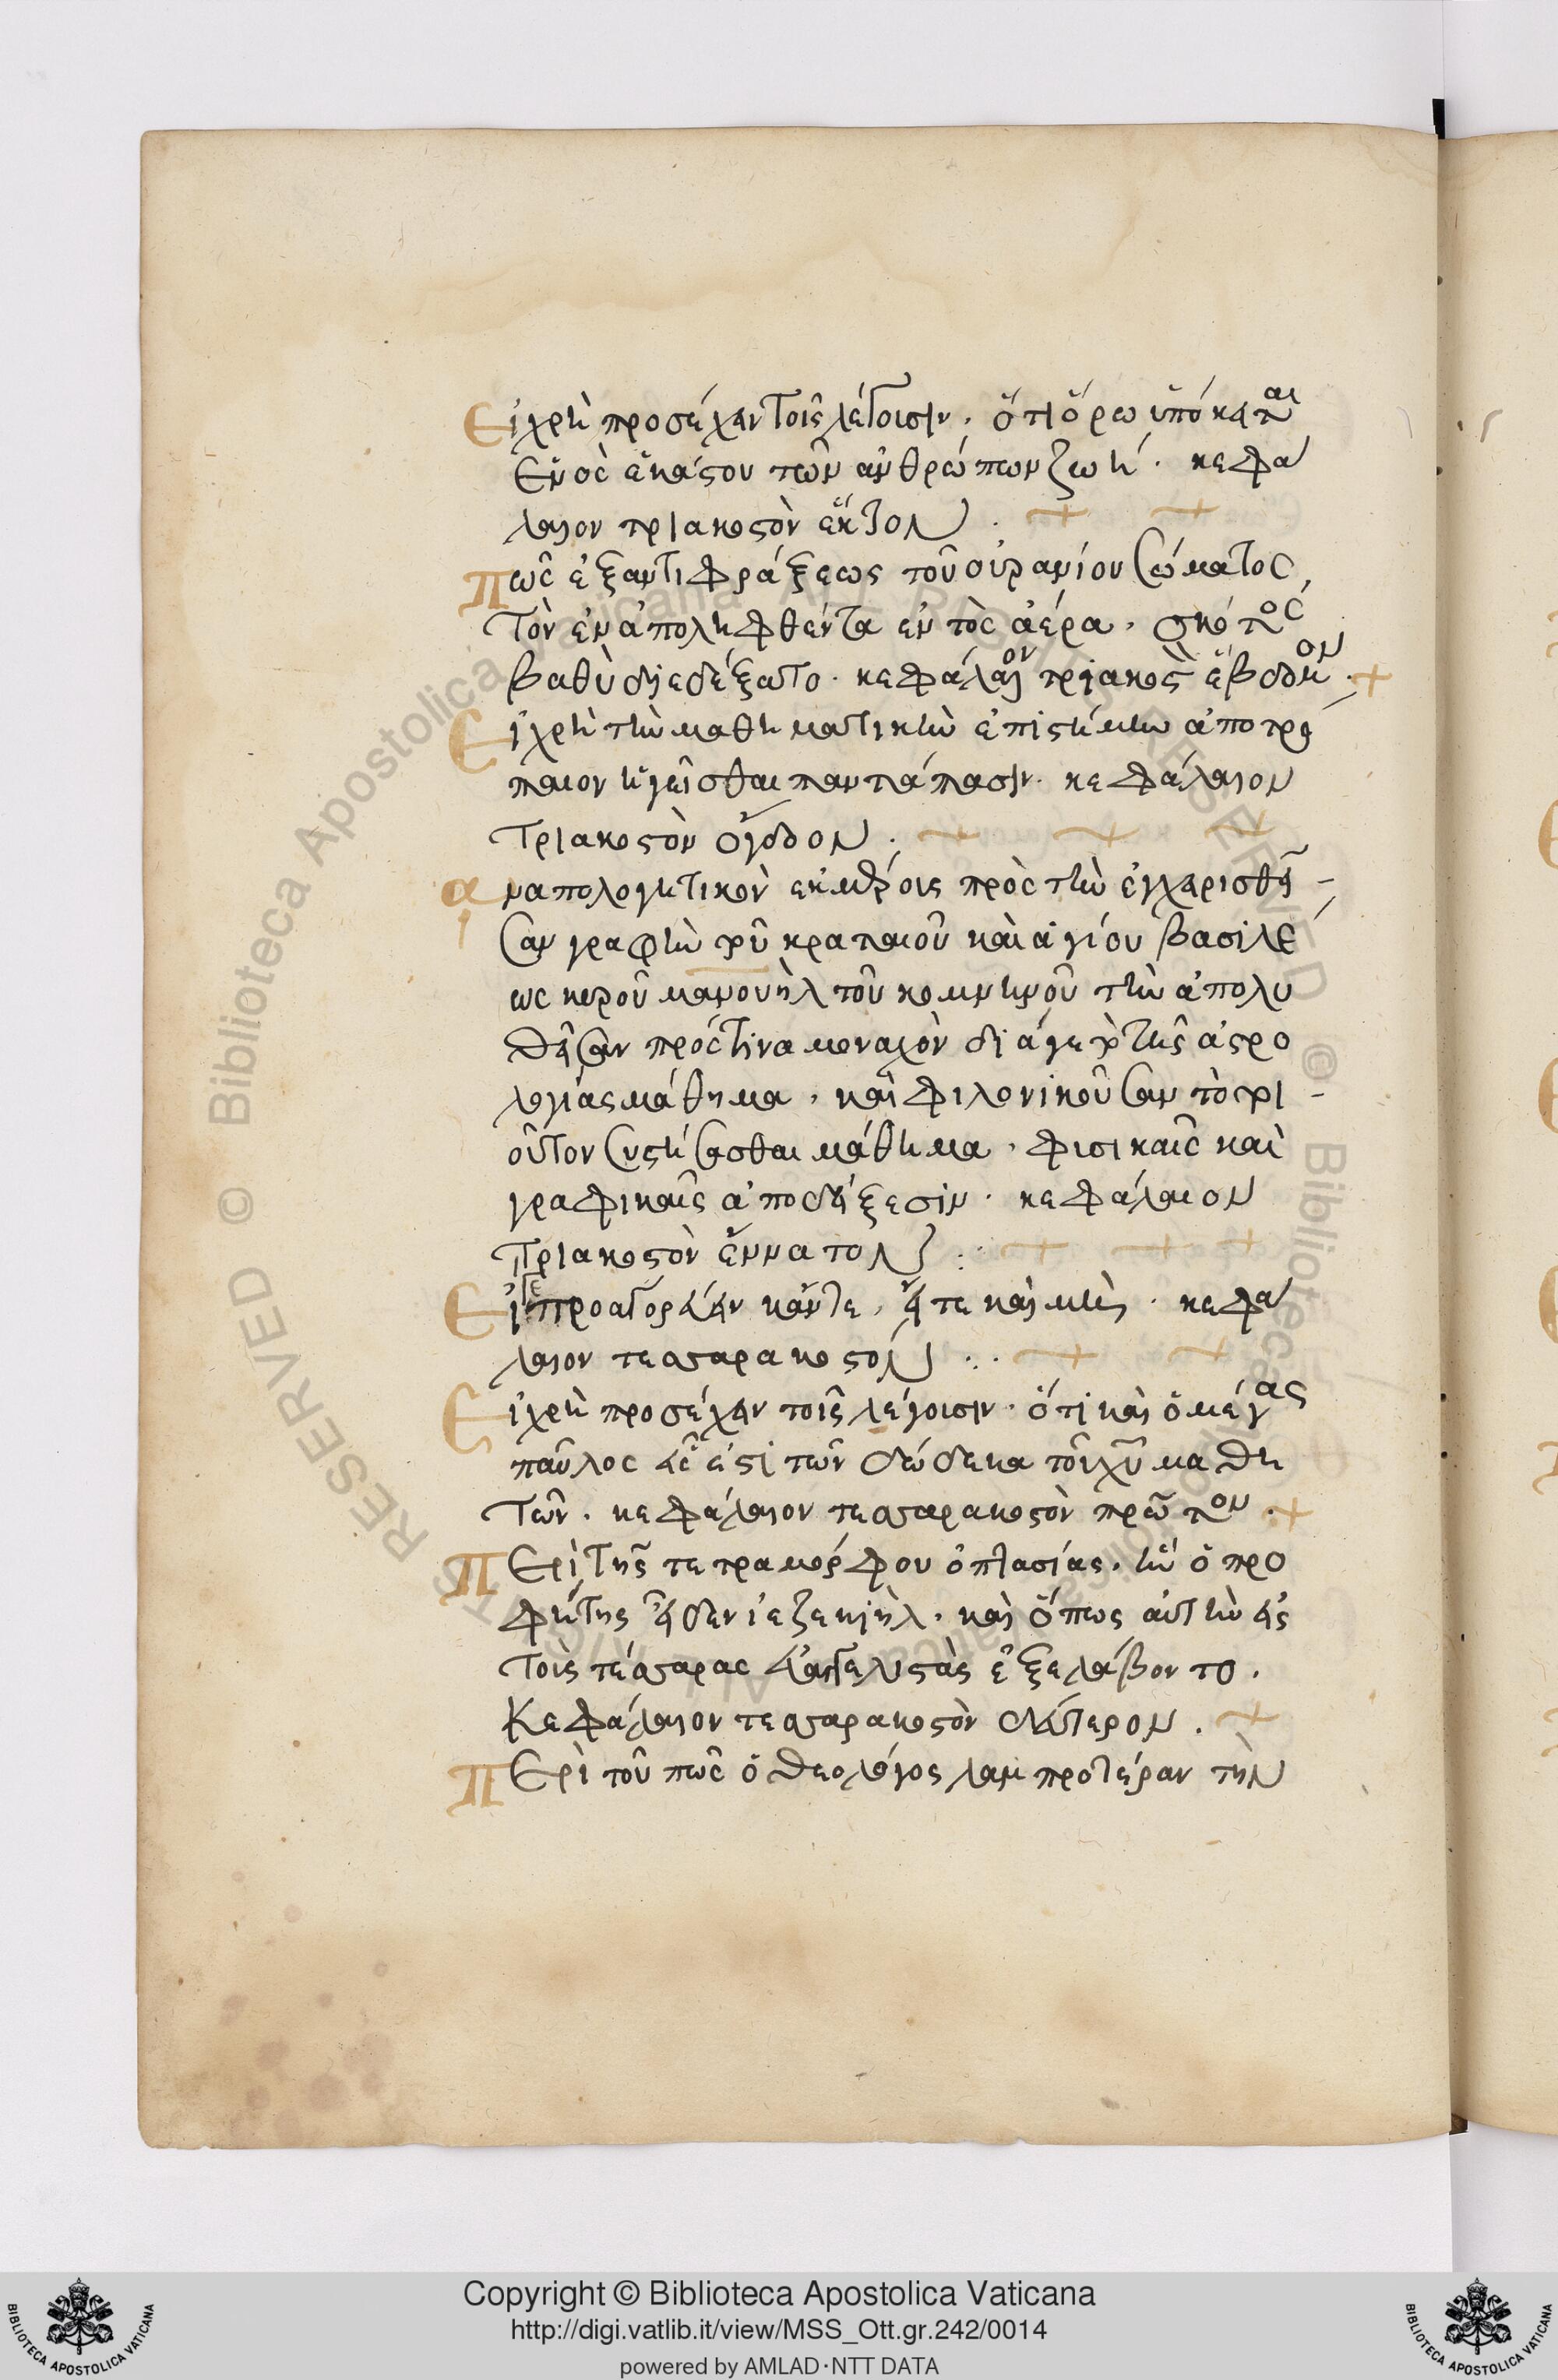 Εἰ χρὴ προσέχειν τοῖς λέγουσιν. ὅτι ὅρω ὑπόκειται
ἑνὸς ἑκάστου τῶν ἀνθρώπων ζωή. κεφά
λαιον τριακοστὸν ἕκτον.
Πῶς ἐξ ἀντιφράξεως τοῦ οὐρανίου σώματος,
τὸν ἐναποληφθέντα ἐντὸς ἀέρα. σκότος
βαθὺ διεδέξατο. κεφάλαιον τριακοστὸν ἕβδομον.
Εἰ χρὴ τὴν μαθηματικὴν ἐπιστήμην ἀποτρό
παιον ἡγεῖσθαι παντάπασιν. κεφάλαιον
τριακοστὸν ὄγδοον.
ἀναπολογητικὸν ἐκ μέρους πρὸς τὴν ἐγχειρισθεῖ-
σαν γραφὴν τοῦ κραταιοῦ καὶ ἁγίου βασιλέ
ως κυροῦ μανουὴλ τοῦ κομνηνοῦ τὴν ἀπολυ
θεῖσαν πρός τινα μοναχὸν διά γε τὸ τῆς ἀστρο
λογίας μάθημα. καὶ φιλονικοῦσαν τὸ τοι-
οῦτον συστήσασθαι μάθημα. φυσικαῖς καὶ
γραφικαῖς ἀποδείξεσιν. κεφάλαιον
τριακοστὸν ἔννατον.
Εἴγε προαγορεύειν κἄντε, εἴτε καὶ μὴ. κεφά
λαιον τεσσαρακοστόν.
Εἰ χρὴ προσέχειν τοῖς λέγουσιν. ὅτι καὶ ὁ μέγας
παῦλος εἷς ἐστι τῶν δώδεκα τοῦ χ̅υ̅ μαθη
τῶν. κεφάλαιον τεσσαρακοστὸν πρῶτον.
Περὶ τῆς τετραμόρφου ὀπτασίας. ἣν ὁ προ
φήτης εἶδεν ἰεζεκιήλ. καὶ ὅπως αὐτὴν εἰς
τοὺς τέσσαρας εὐαγγελιστὰς ἐξελάβοντο.
Κεφάλαιον τεσσαρακοστὸν δεύτερον.
Περὶ τοῦ πῶς ὁ θεολόγος λαμπροτέραν τὴν
Copyright © Biblioteca Apostolica Vaticana
http://digi.vatlib.it/view/MSS_Ott.gr.242/0014
powered by AMLAD·NTT DATA